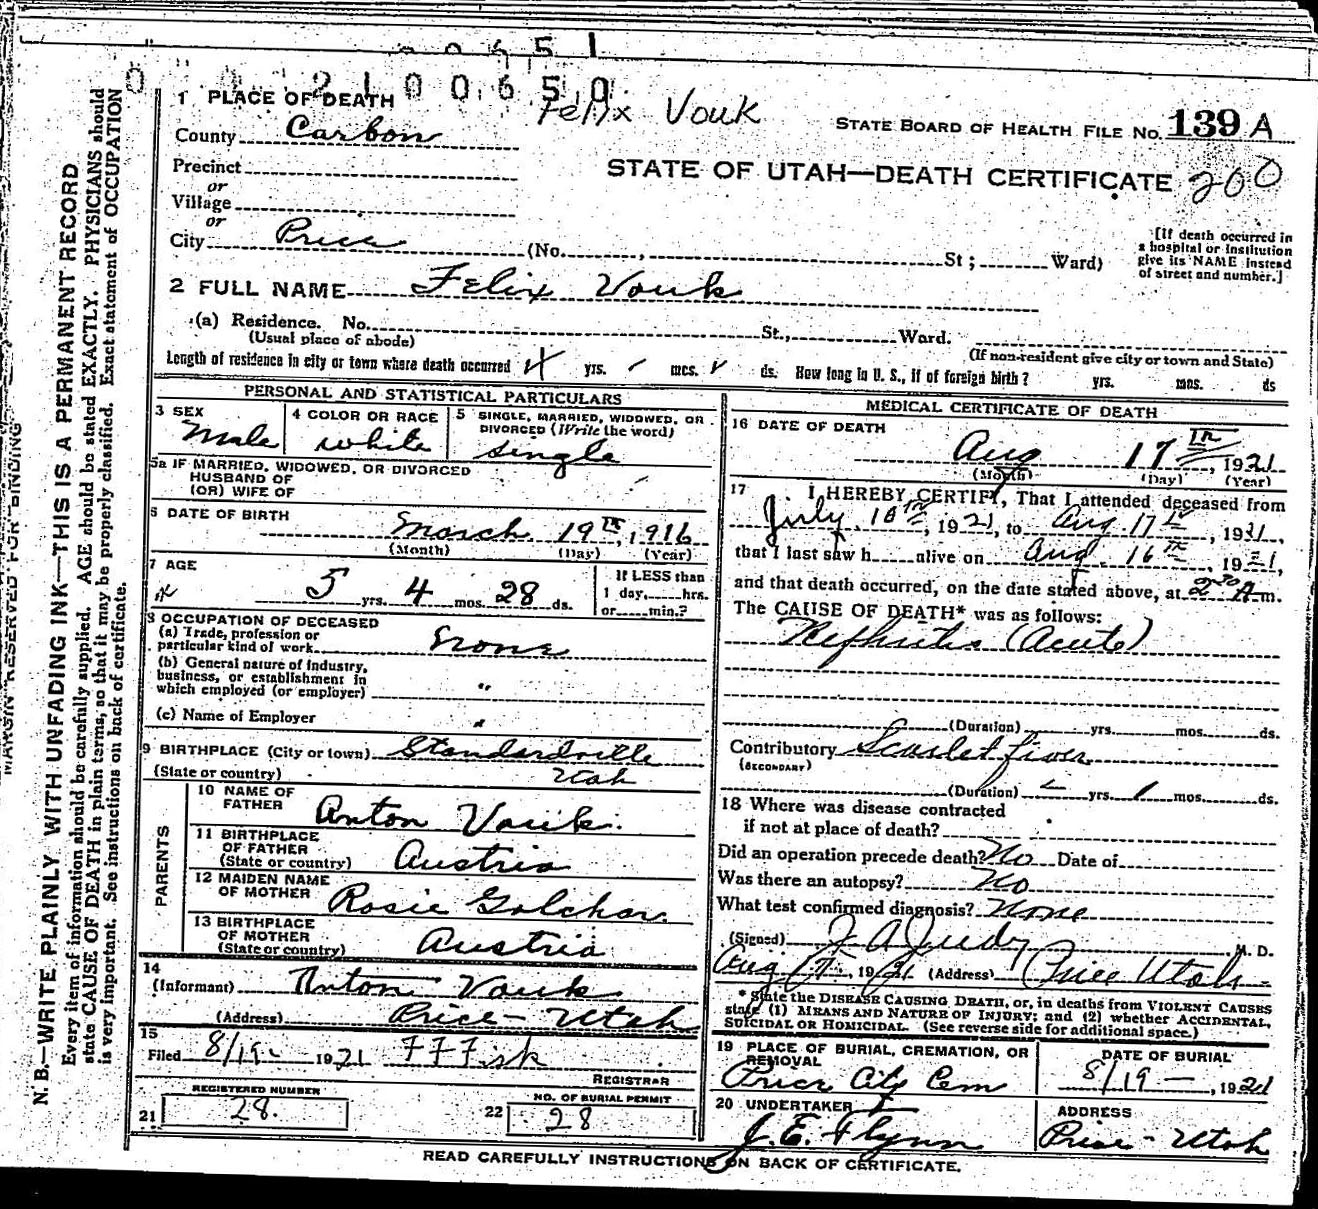 0 6 5 1
0 0 2 1 0 0 6 5 0
Felix Vouk
1 PLACE OF DEATH
STATE BOARD OF HEALTH FILE No. 139 A
County Carbon
STATE OF UTAH—DEATH CERTIFICATE 200
Precinct
or
Village
or
City Price (No. , St ; Ward)
[If death occurred in
a hospital or institution
give its NAME instead
of street and number.]
2 FULL NAME Felix Vouk
(a) Residence. No. St., Ward.
(Usual place of abode) (If non-resident give city or town and State)
Length of residence in city or town where death occurred 4 yrs. mos. ds. How long in U. S., if of foreign birth? yrs. mos. ds
PERSONAL AND STATISTICAL PARTICULARS
3 SEX
Male
4 COLOR OR RACE
white
5 SINGLE, MARRIED, WIDOWED, OR
DIVORCED (Write the word)
single
5a IF MARRIED, WIDOWED, OR DIVORCED
HUSBAND OF
(OR) WIFE OF
6 DATE OF BIRTH
March 19th, 1916
(Month) (Day) (Year)
7 AGE
5 yrs. 4 mos. 28 ds.
If LESS than
1 day, hrs.
or min.?
8 OCCUPATION OF DECEASED
(a) Trade, profession or
particular kind of work None
(b) General nature of industry,
business, or establishment in
which employed (or employer) "
(c) Name of Employer "
9 BIRTHPLACE (City or town) Standardville
(State or country) Utah
PARENTS
10 NAME OF
FATHER Anton Vouk.
11 BIRTHPLACE
OF FATHER
(State or country) Austria
12 MAIDEN NAME
OF MOTHER Rosie Golchar
13 BIRTHPLACE
OF MOTHER
(State or country) Austria
14
(Informant) Anton Vouk
(Address) Price - Utah
15
Filed 8/19- 1921 F F Fisk
REGISTRAR
REGISTERED NUMBER
21 28.
NO. OF BURIAL PERMIT
22 28
MEDICAL CERTIFICATE OF DEATH
16 DATE OF DEATH
Aug 17th, 1921
(Month) (Day) (Year)
17 I HEREBY CERTIFY, That I attended deceased from
July 10th, 1921, to Aug. 17th, 1921,
that I last saw h alive on Aug. 16th, 1921,
and that death occurred, on the date stated above, at 2:30 A m.
The CAUSE OF DEATH* was as follows:
Nephritis (Acute)
(Duration) yrs. mos. ds.
Contributory Scarlet fever
(SECONDARY)
(Duration) yrs. 1 mos. ds.
18 Where was disease contracted
if not at place of death?
Did an operation precede death? No Date of
Was there an autopsy? No
What test confirmed diagnosis? None
(Signed) F A Judy M. D.
Aug 17, 1921 (Address) Price Utah
* State the DISEASE CAUSING DEATH, or, in deaths from VIOLENT CAUSES
state (1) MEANS AND NATURE OF INJURY; and (2) whether ACCIDENTAL,
SUICIDAL OR HOMICIDAL. (See reverse side for additional space.)
19 PLACE OF BURIAL, CREMATION, OR
REMOVAL
Price City Cem
DATE OF BURIAL
8/19-, 1921
20 UNDERTAKER
J. E. Flynn
ADDRESS
Price - Utah
READ CAREFULLY INSTRUCTIONS ON BACK OF CERTIFICATE.
MARGIN RESERVED FOR BINDING
N. B.—WRITE PLAINLY WITH UNFADING INK—THIS IS A PERMANENT RECORD
Every item of information should be carefully supplied. AGE should be stated EXACTLY. PHYSICIANS should
state CAUSE OF DEATH in plain terms, so that it may be properly classified. Exact statement of OCCUPATION
is very important. See instructions on back of certificate.